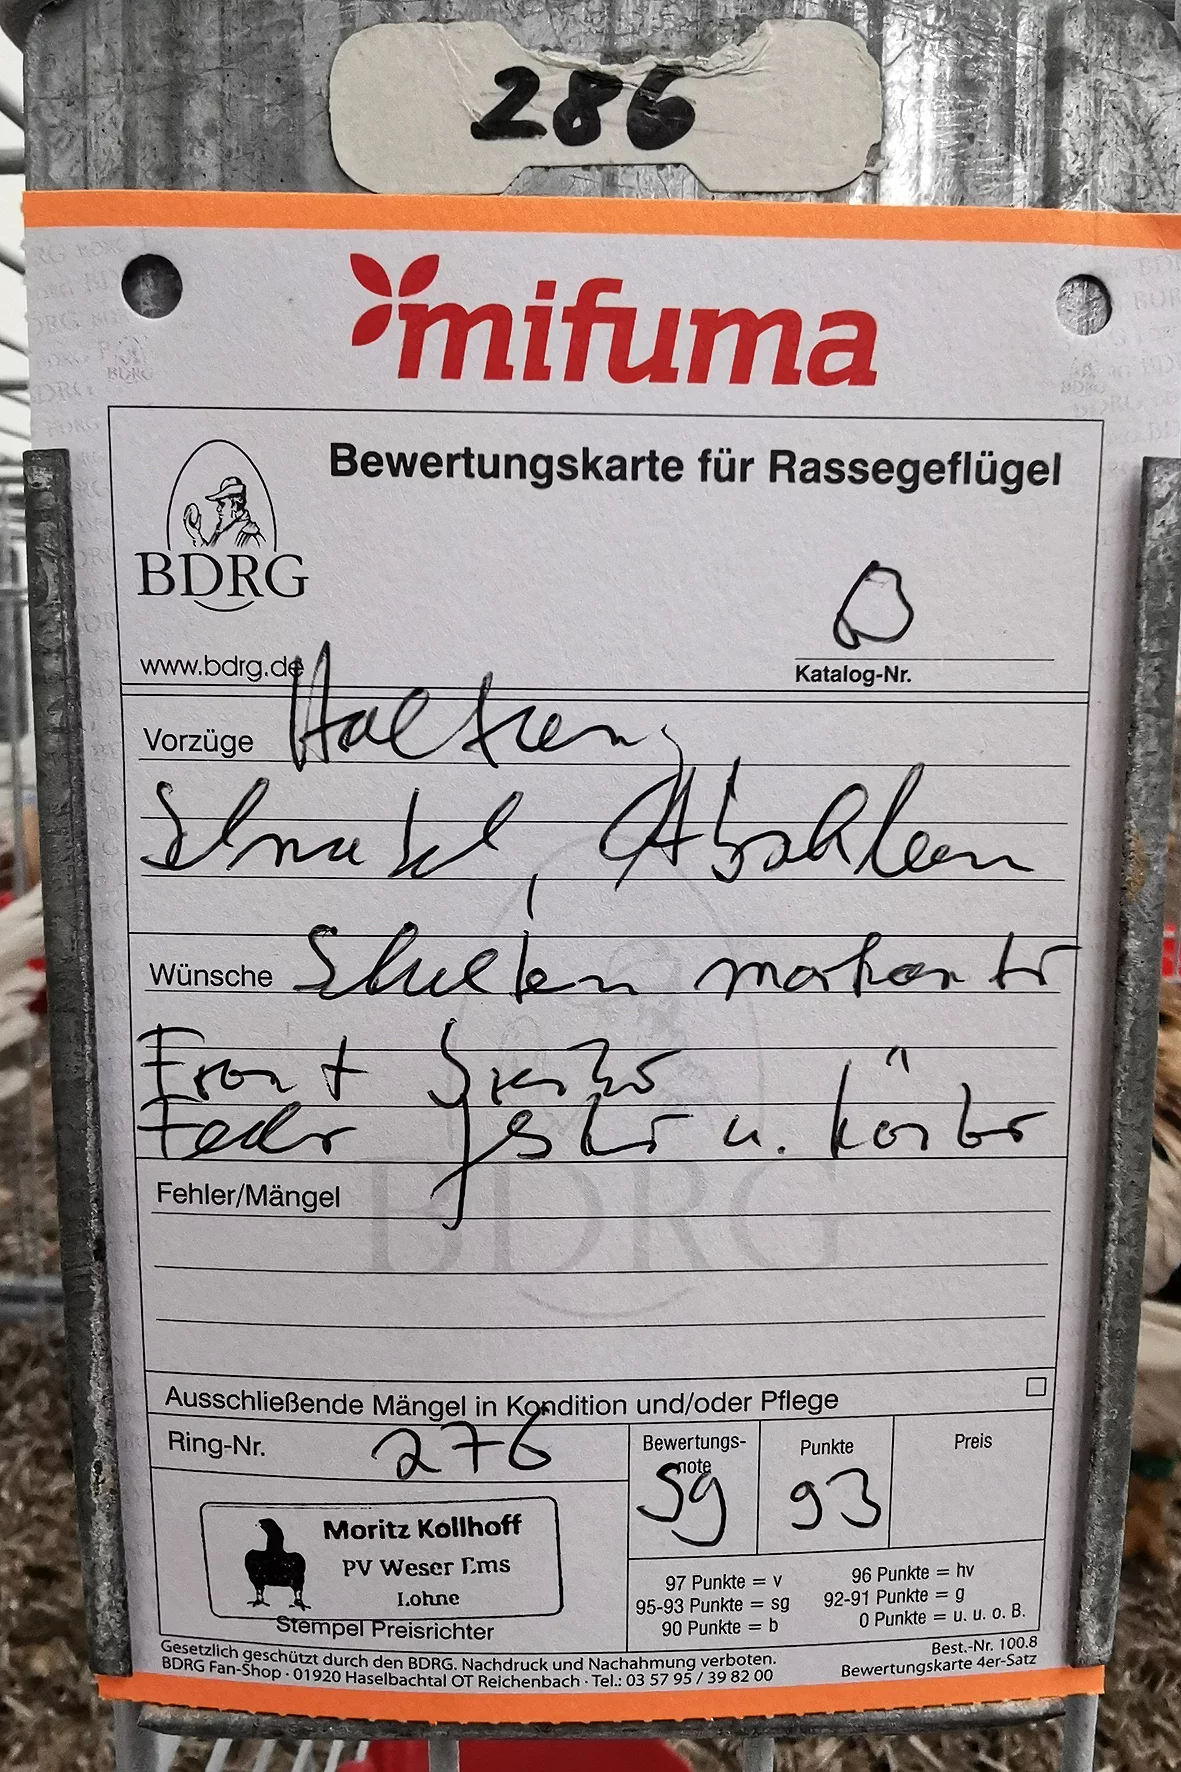 286
mifuma
Bewertungskarte für Rassegeflügel
BDRG
www.bdrg.de
Katalog-Nr.
Vorzüge Haltung
Schnabel,
Wünsche Schultern markanter
Front
Feder fester u. kürzer
Fehler/Mängel
BDRG
Ausschließende Mängel in Kondition und/oder Pflege
Ring-Nr. 276
Bewertungs-
note
sg
Punkte
93
Preis
Moritz Kollhoff
PV Weser Ems
Lohne
Stempel Preisrichter
97 Punkte = v
95-93 Punkte = sg
90 Punkte = b
96 Punkte = hv
92-91 Punkte = g
0 Punkte = u. u. o. B.
Gesetzlich geschützt durch den BDRG. Nachdruck und Nachahmung verboten.
BDRG Fan-Shop · 01920 Haselbachtal OT Reichenbach · Tel.: 03 57 95 / 39 82 00
Best.-Nr. 100.8
Bewertungskarte 4er-Satz